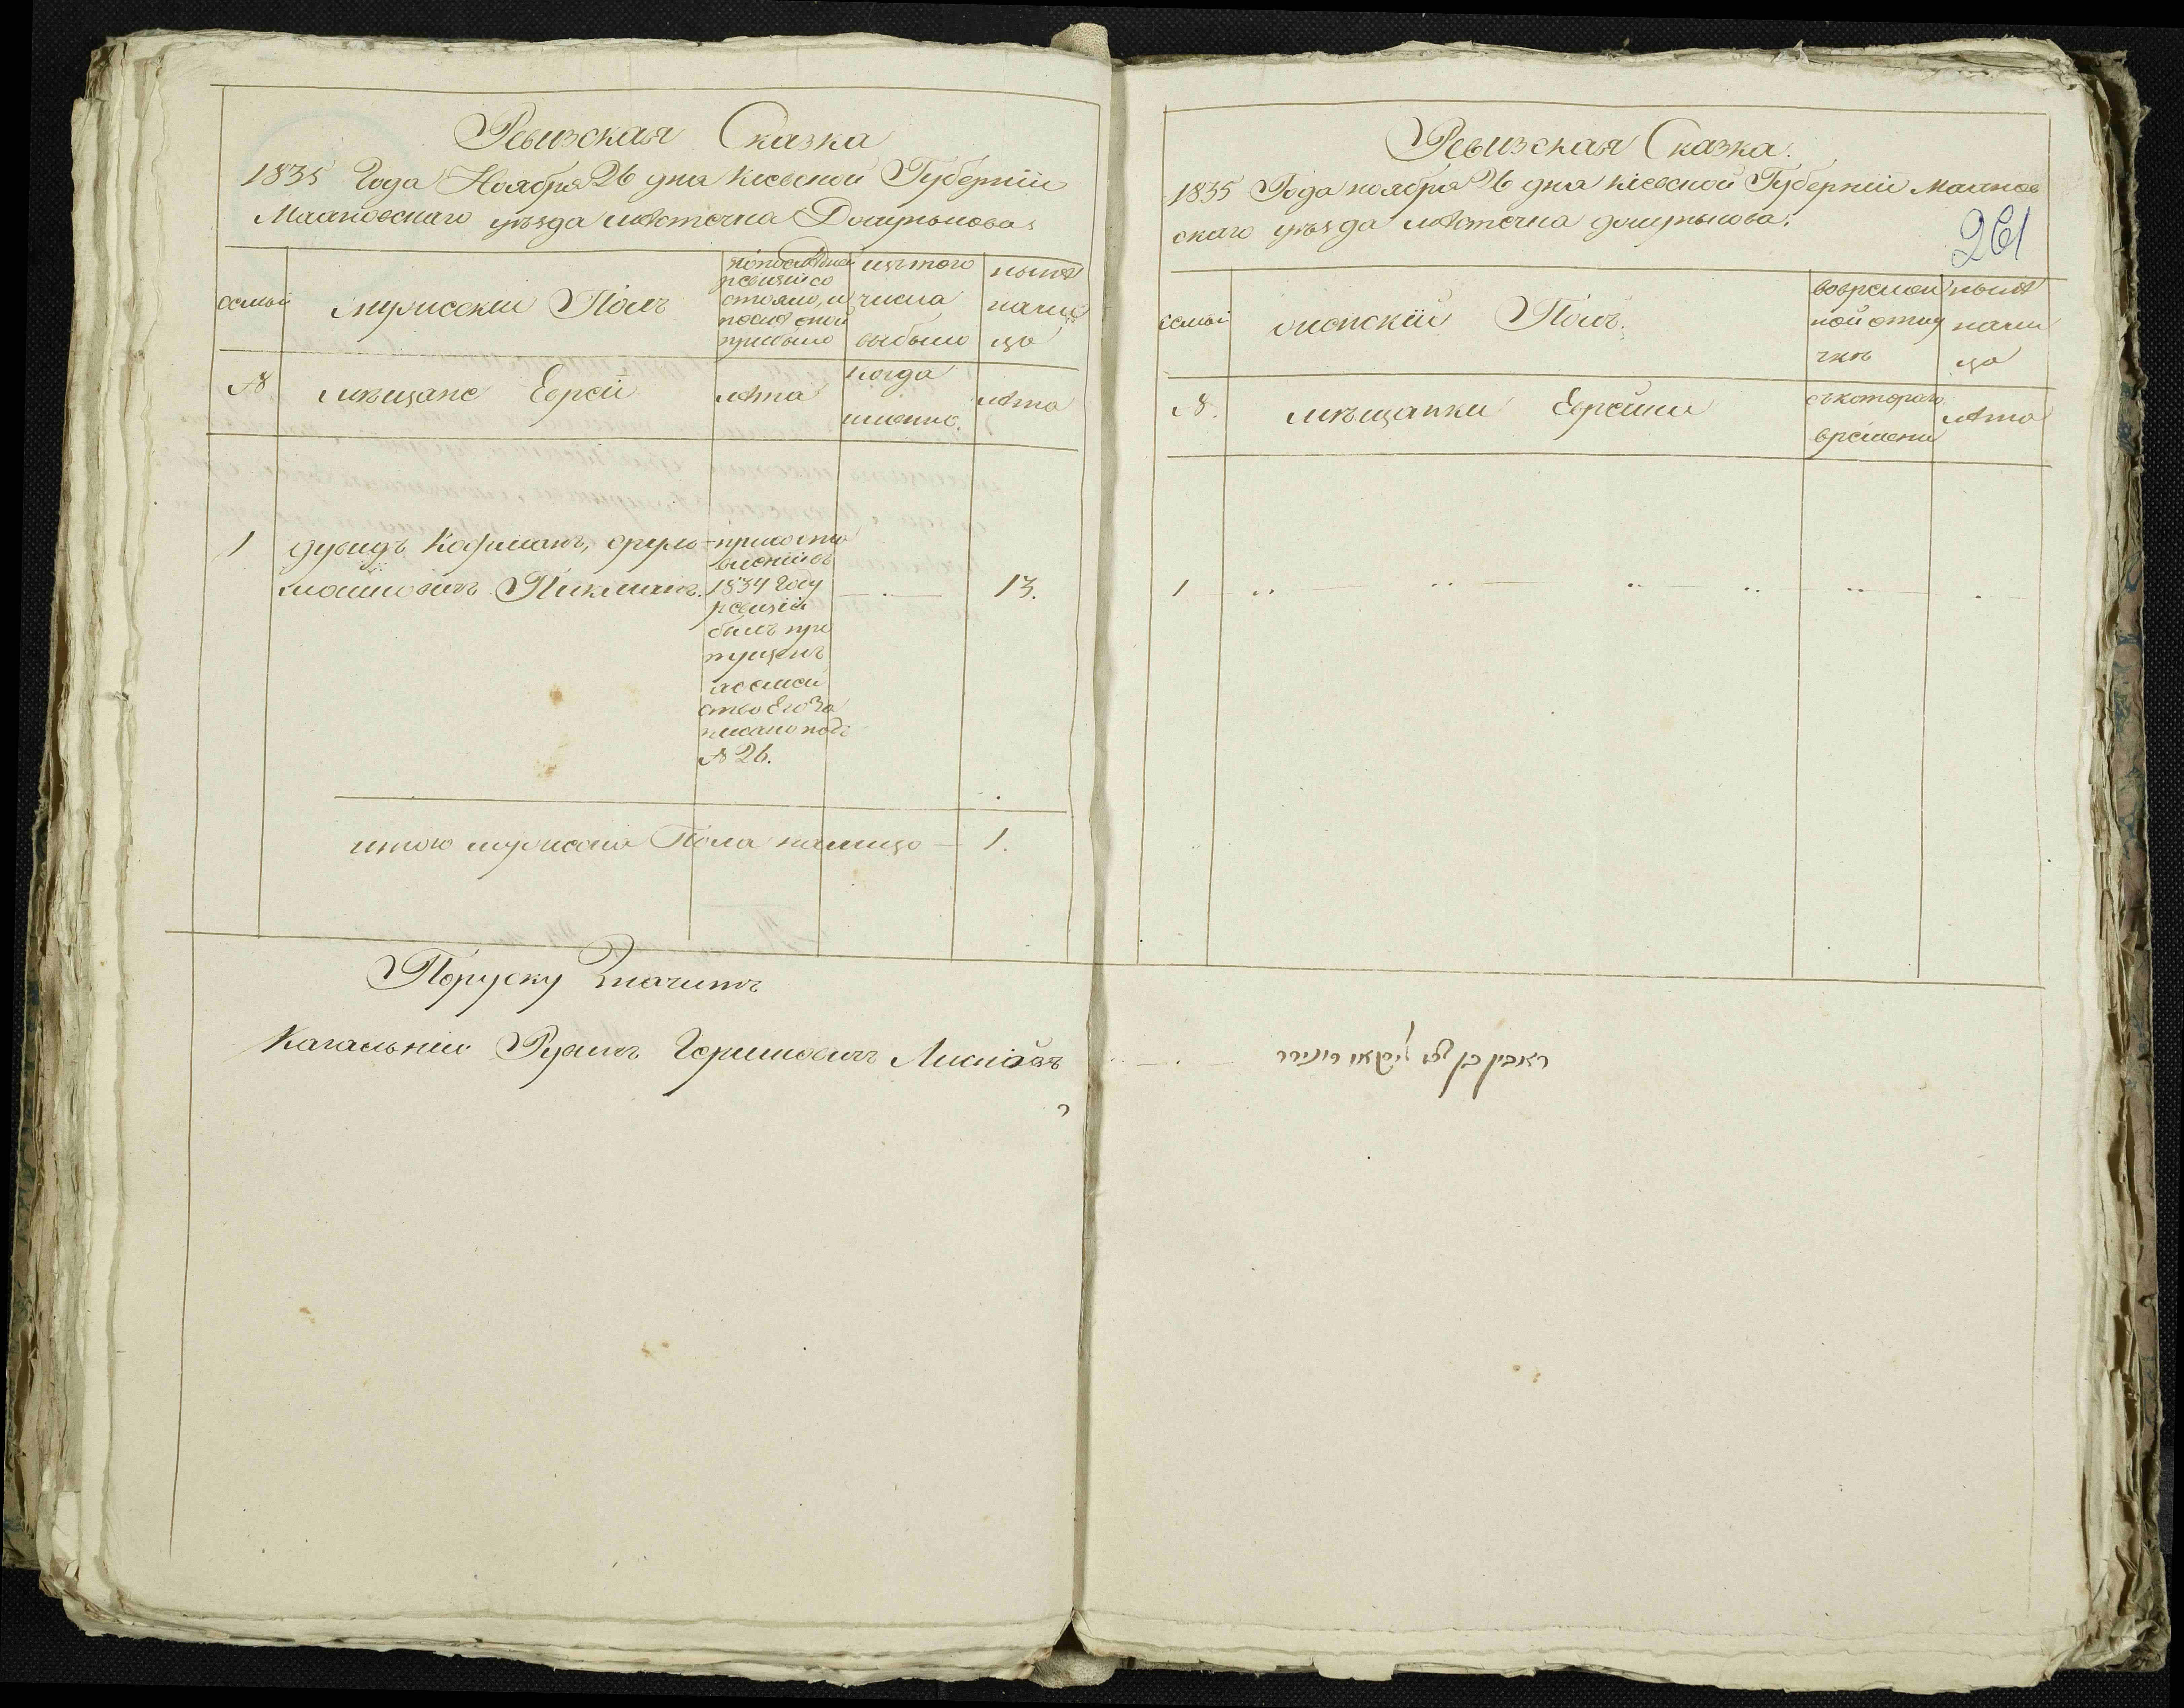 Ревизская Сказка
1835 Года Ноября 26 дня Киевской Губернии
Махновского уезда местечка
семьи
мужеский Полъ
по последней ревизии состояло, и после оной прибыло
из того числа выбыло
ныне налицо
№
мещане Евреи
лета
когда именно.
лета
1
Дувидъ Кофманъ,
Мошковичъ
при составлении въ 1834 году ревизии былъ пропущенъ а семейство Его записано подъ № 26.
13.
итого мужеска Пола налицо — 1.
Порусску Значитъ
Кагальный Рувинъ Гершковичъ
Ревизская Сказка.
1835 Года ноября 26 дня Киевской Губернии Махнов
ского уезда местечка
261
семьи
женский Полъ.
во временной отлучке
ныне налицо
№.
мещанки Еврейки
съ котораго времени
лета
1
ראובין בן